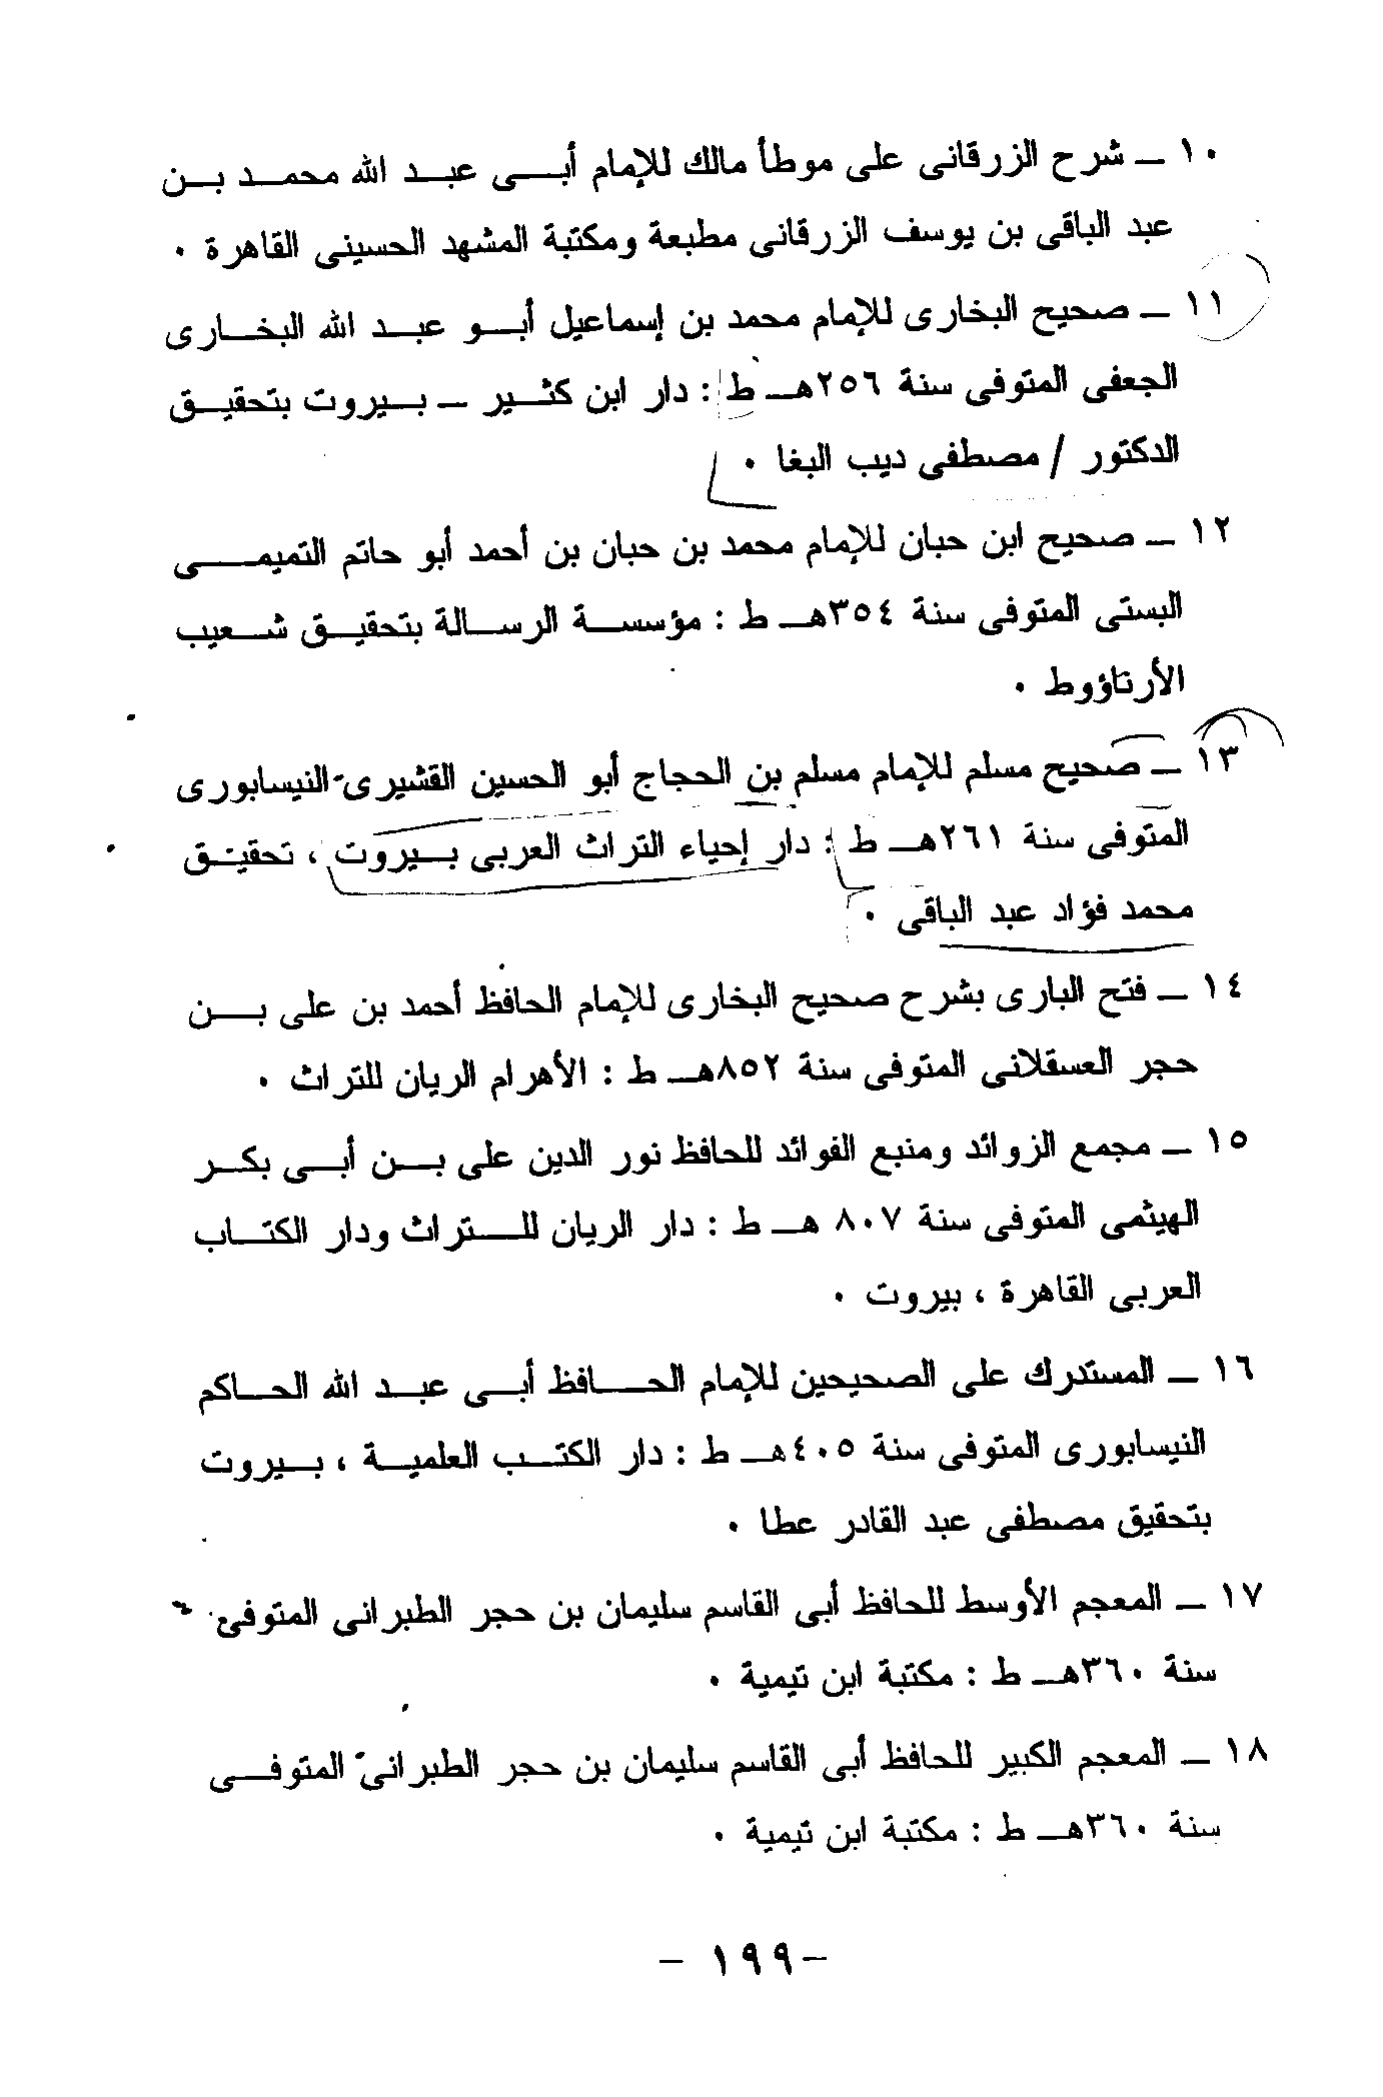 ١٠ ـ شرح الزرقانى على موطأ مالك للإمام أبى عبد الله محمد بن
عبد الباقى بن يوسف الزرقانى مطبعة ومكتبة المشهد الحسينى القاهرة ٠
١١ ـ صحيح البخارى للإمام محمد بن إسماعيل أبو عبد الله البخارى
الجعفى المتوفى سنة ٢٥٦هـ ط : دار ابن كثير ـ بيروت بتحقيق
الدكتور / مصطفى ديب البغا ٠
١٢ ـ صحيح ابن حبان للإمام محمد بن حبان بن أحمد أبو حاتم التميمى
البستى المتوفى سنة ٣٥٤هـ ط : مؤسسة الرسالة بتحقيق شعيب
الأرناؤوط ٠
١٣ ـ صحيح مسلم للإمام مسلم بن الحجاج أبو الحسين القشيرى النيسابورى
المتوفى سنة ٢٦١هـ ط : دار إحياء التراث العربى بيروت ، تحقيق
محمد فؤاد عبد الباقى ٠
١٤ ـ فتح البارى بشرح صحيح البخارى للإمام الحافظ أحمد بن على بن
حجر العسقلانى المتوفى سنة ٨٥٢هـ ط : الأهرام الريان للتراث ٠
١٥ ـ مجمع الزوائد ومنبع الفوائد للحافظ نور الدين على بن أبى بكر
الهيثمى المتوفى سنة ٨٠٧ هـ ط : دار الريان للتراث ودار الكتاب
العربى القاهرة ، بيروت ٠
١٦ ـ المستدرك على الصحيحين للإمام الحافظ أبى عبد الله الحاكم
النيسابورى المتوفى سنة ٤٠٥هـ ط : دار الكتب العلمية ، بيروت
بتحقيق مصطفى عبد القادر عطا ٠
١٧ ـ المعجم الأوسط للحافظ أبى القاسم سليمان بن حجر الطبرانى المتوفى
سنة ٣٦٠هـ ط : مكتبة ابن تيمية ٠
١٨ ـ المعجم الكبير للحافظ أبى القاسم سليمان بن حجر الطبرانى المتوفى
سنة ٣٦٠هـ ط : مكتبة ابن تيمية ٠
- ١٩٩ -